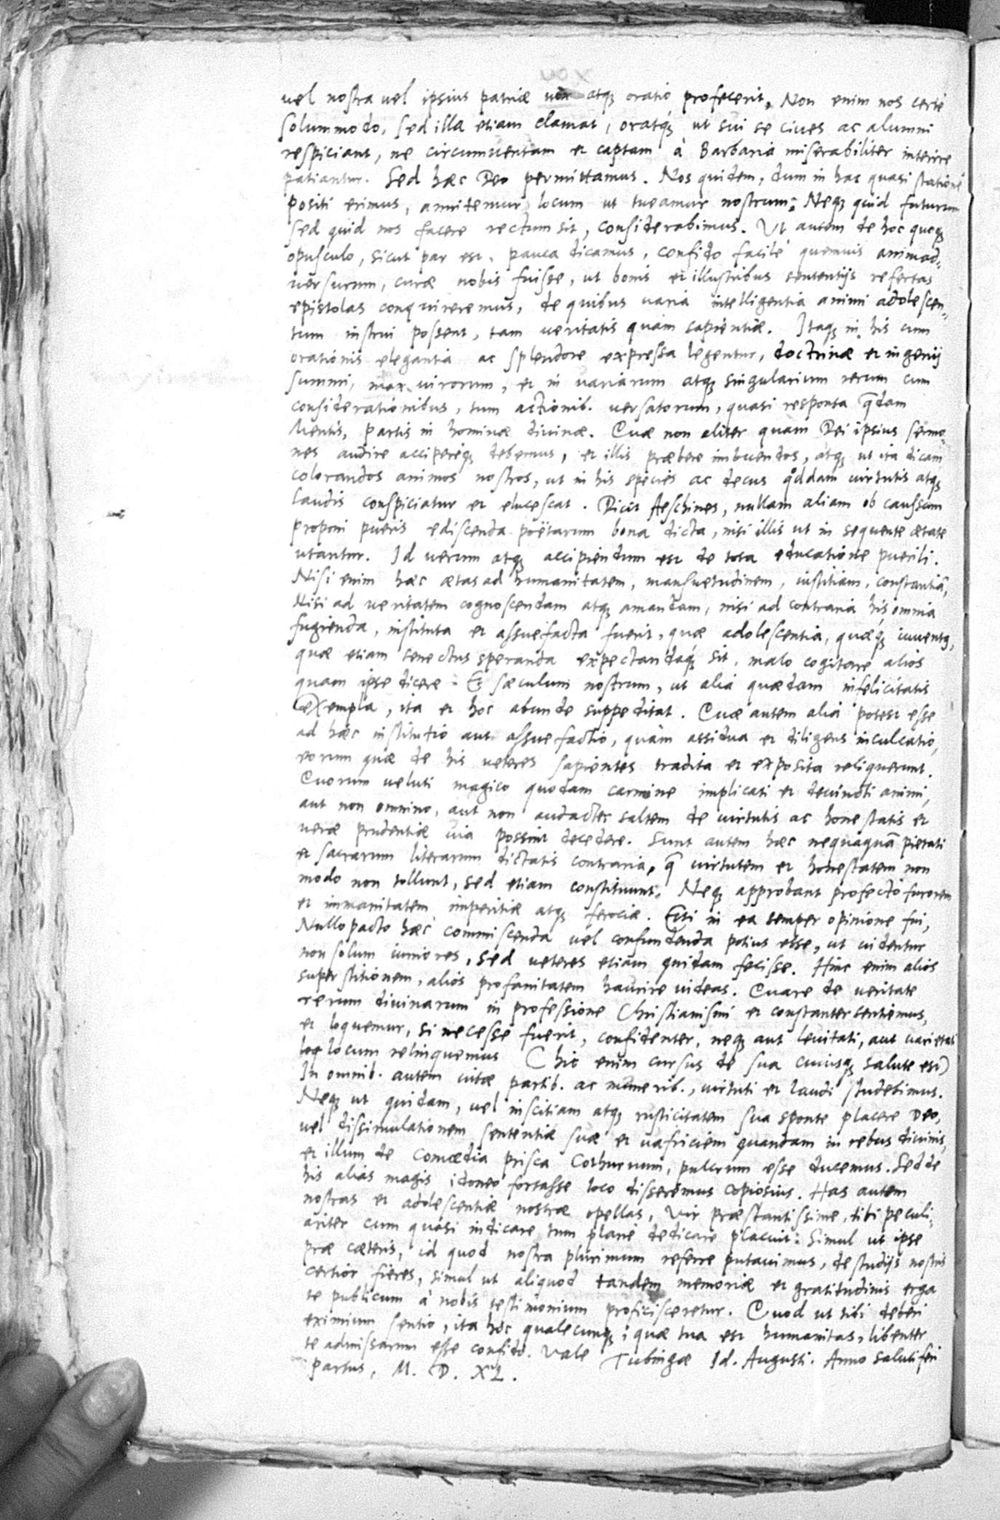 vel nostra vel ipsius patriæ vox atq; oratio profecerit. Non enim nos certe
solummodo, sed illa etiam clamat, oratq; ut sui se ciues ac alumni
respiciant, ne circumuentam et captam à Barbaria miserabiliter interire
patiantur. Sed hæc Deo permittamus. Nos quidem, dum in hac quasi statione
positi erimus, annitemur, locum ut tueamur nostrum: Neq; quid futurum
sed quid nos facere rectum sit, considerabimus. Ut autem de hoc quoq;
opusculo, sicut par est, pauca dicamus, confido facilè quemuis animad-
versurum, curæ nobis fuisse, ut bonis et illustribus sententijs refertas
epistolas conquireremus, de quibus varia intelligentia animi adolescen-
tum instrui possent, tam veritatis quàm sapientiæ. Itaq; in his cum
orationis elegantia ac splendore expressa legentur, doctrinæ et ingenij
summi, max. virorum, et in variarum atq; singularium rerum cum
considerationibus, tum actionib. versatorum, quasi responta quædam
Mentis, partis in homine divinæ. Quæ non aliter quam Dei ipsius sermo-
nes audire accipereq; debemus, et illis præbere imbuendos, atq; ut ita dicam
colorandos animos nostros, ut in his species ac decus quoddam virtutis atq;
laudis conspiciatur et elucescat. Dicit Aeschines, nullam aliam ob caussam
proponi pueris ediscenda poëtarum bona dicta, nisi illis ut in sequente ætate
utantur. Id verum atq; accipiendum est de tota educatione puerili.
Nisi enim hæc ætas ad humanitatem, mansuetudinem, iustitiam, constantiā,
Nisi ad veritatem cognoscendam atq; amandam, nisi ad contraria his omnia
fugienda, instituta et assuefacta fuerit, quæ adolescentia, quæq; iuuentus,
quæ etiam senectus speranda expectandaq; sit, malo cogitare alios
quam ipse dicere. Et sæculum nostrum, ut alia quædam infelicitatis
exempla, ita et hoc abunde suppeditat. Quæ autem alia potest esse
ad hæc institutio aut assuefactio, quàm assidua et diligens inculcatio,
eorum quæ de his veteres sapientes tradita et exposita reliquerunt.
Quorum veluti magico quodam carmine implicati et devincti animi,
aut non omnino, aut non audacter saltem de virtutis ac honestatis et
veræ prudentiæ via possint decedere. Sunt autem hæc nequaquā pietati
et sacrarum literarum dictatis contraria, quæ virtutem et honestatem non
modo non tollunt, sed etiam constituunt. Neq; approbant profecto furorem
et immanitatem imperitiæ atq; ferociæ. Etsi in ea semper opinione fui,
Nullo pacto hæc commiscenda vel confundenda potius esse, ut videntur
non solum iuniores, sed veteres etiam quidam fecisse. Hinc enim alios
superstitionem, alios profanitatem haurire videas. Quare de veritate
rerum divinarum in professione Christianismi et constanter sentiemus,
et loquemur, si necesse fuerit, confidenter, neq; aut levitati, aut varietati
locum relinquemus (hic enim cursus de sua cuiusq; salute est)
In omnib. autem vitæ partib. ac munerib., virtuti et laudi studebimus.
Neq; ut quidam, vel inscitiam atq; rusticitatem sua sponte placere Deo,
vel dissimulationem sententiæ suæ et vafriciem quandam in rebus divinis,
et illum de Comœdia prisca Cothurnum, pulcrum esse ducemus. Sed de
his alias magis idoneo fortasse loco disseremus copiosius. Has autem
nostras et adolescentiæ nostræ opellas, Vir præstantissime, tibi peculi-
ariter cum quasi indicare tum planè dedicare placuit: Simul ut ipse
præ cæteris, id quod nostra plurimum referre putauimus, de studijs nostris
certior fieres, simul ut aliquod tandem memoriæ et gratitudinis erga
te publicum à nobis testimonium proficisceretur. Quod ut tibi deberi
eximium sentio, ita hoc qualecunq; quæ tua est humanitas, libenter
te admissurum esse confido. Vale Tubingæ Id. Augusti. Anno salutiferi
partus, M. D. XL.